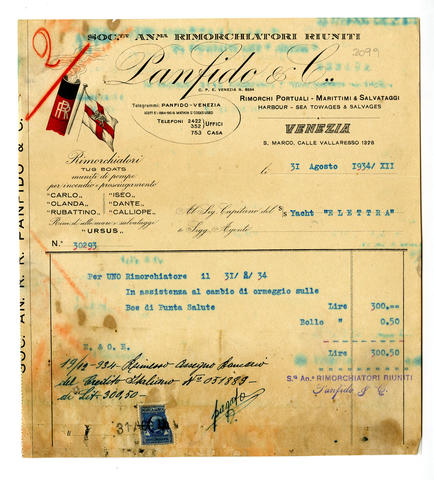 SOC.tà AN.ma RIMORCHIATORI RIUNITI
2
Panfido & C.
2099
C. P. E. VENEZIA N. 8594
RIMORCHI PORTUALI - MARITTIMI & SALVATAGGI
HARBOUR - SEA TOWAGES & SALVAGES
Telegrammi: PANFIDO-VENEZIA
TELEFONI 2422 352 UFFICI
753 CASA
VENEZIA
S. MARCO, CALLE VALLARESSO 1328
RR
li 31 Agosto 1934/XII
Rimorchiatori
TUG BOATS
muniti di pompe
per incendio e prosciugamento
"CARLO„ "ISEO„
"OLANDA„ "DANTE„
"RUBATTINO„ "CALLIOPE„
Rim. di alto mare e salvataggi
"URSUS„
Al Sig. Capitano del S/S Yacht "ELETTRA"
e Sigg. Agente
N.° 30293
SOC. AN. R. R. PANFIDO & C.
Per UNO Rimorchiatore il 31/8/34
In assistenza al cambio di ormeggio sulle
Boe di Punta Salute Lire 300.==
Bollo " 0,50
E. & O. E.
Lire 300.50
19/9-934 Rimesso assegno bancario
del Credito Italiano N° 051889
di Lit. 300,50
S.tà An.a RIMORCHIATORI RIUNITI
Panfido & C.
pagato